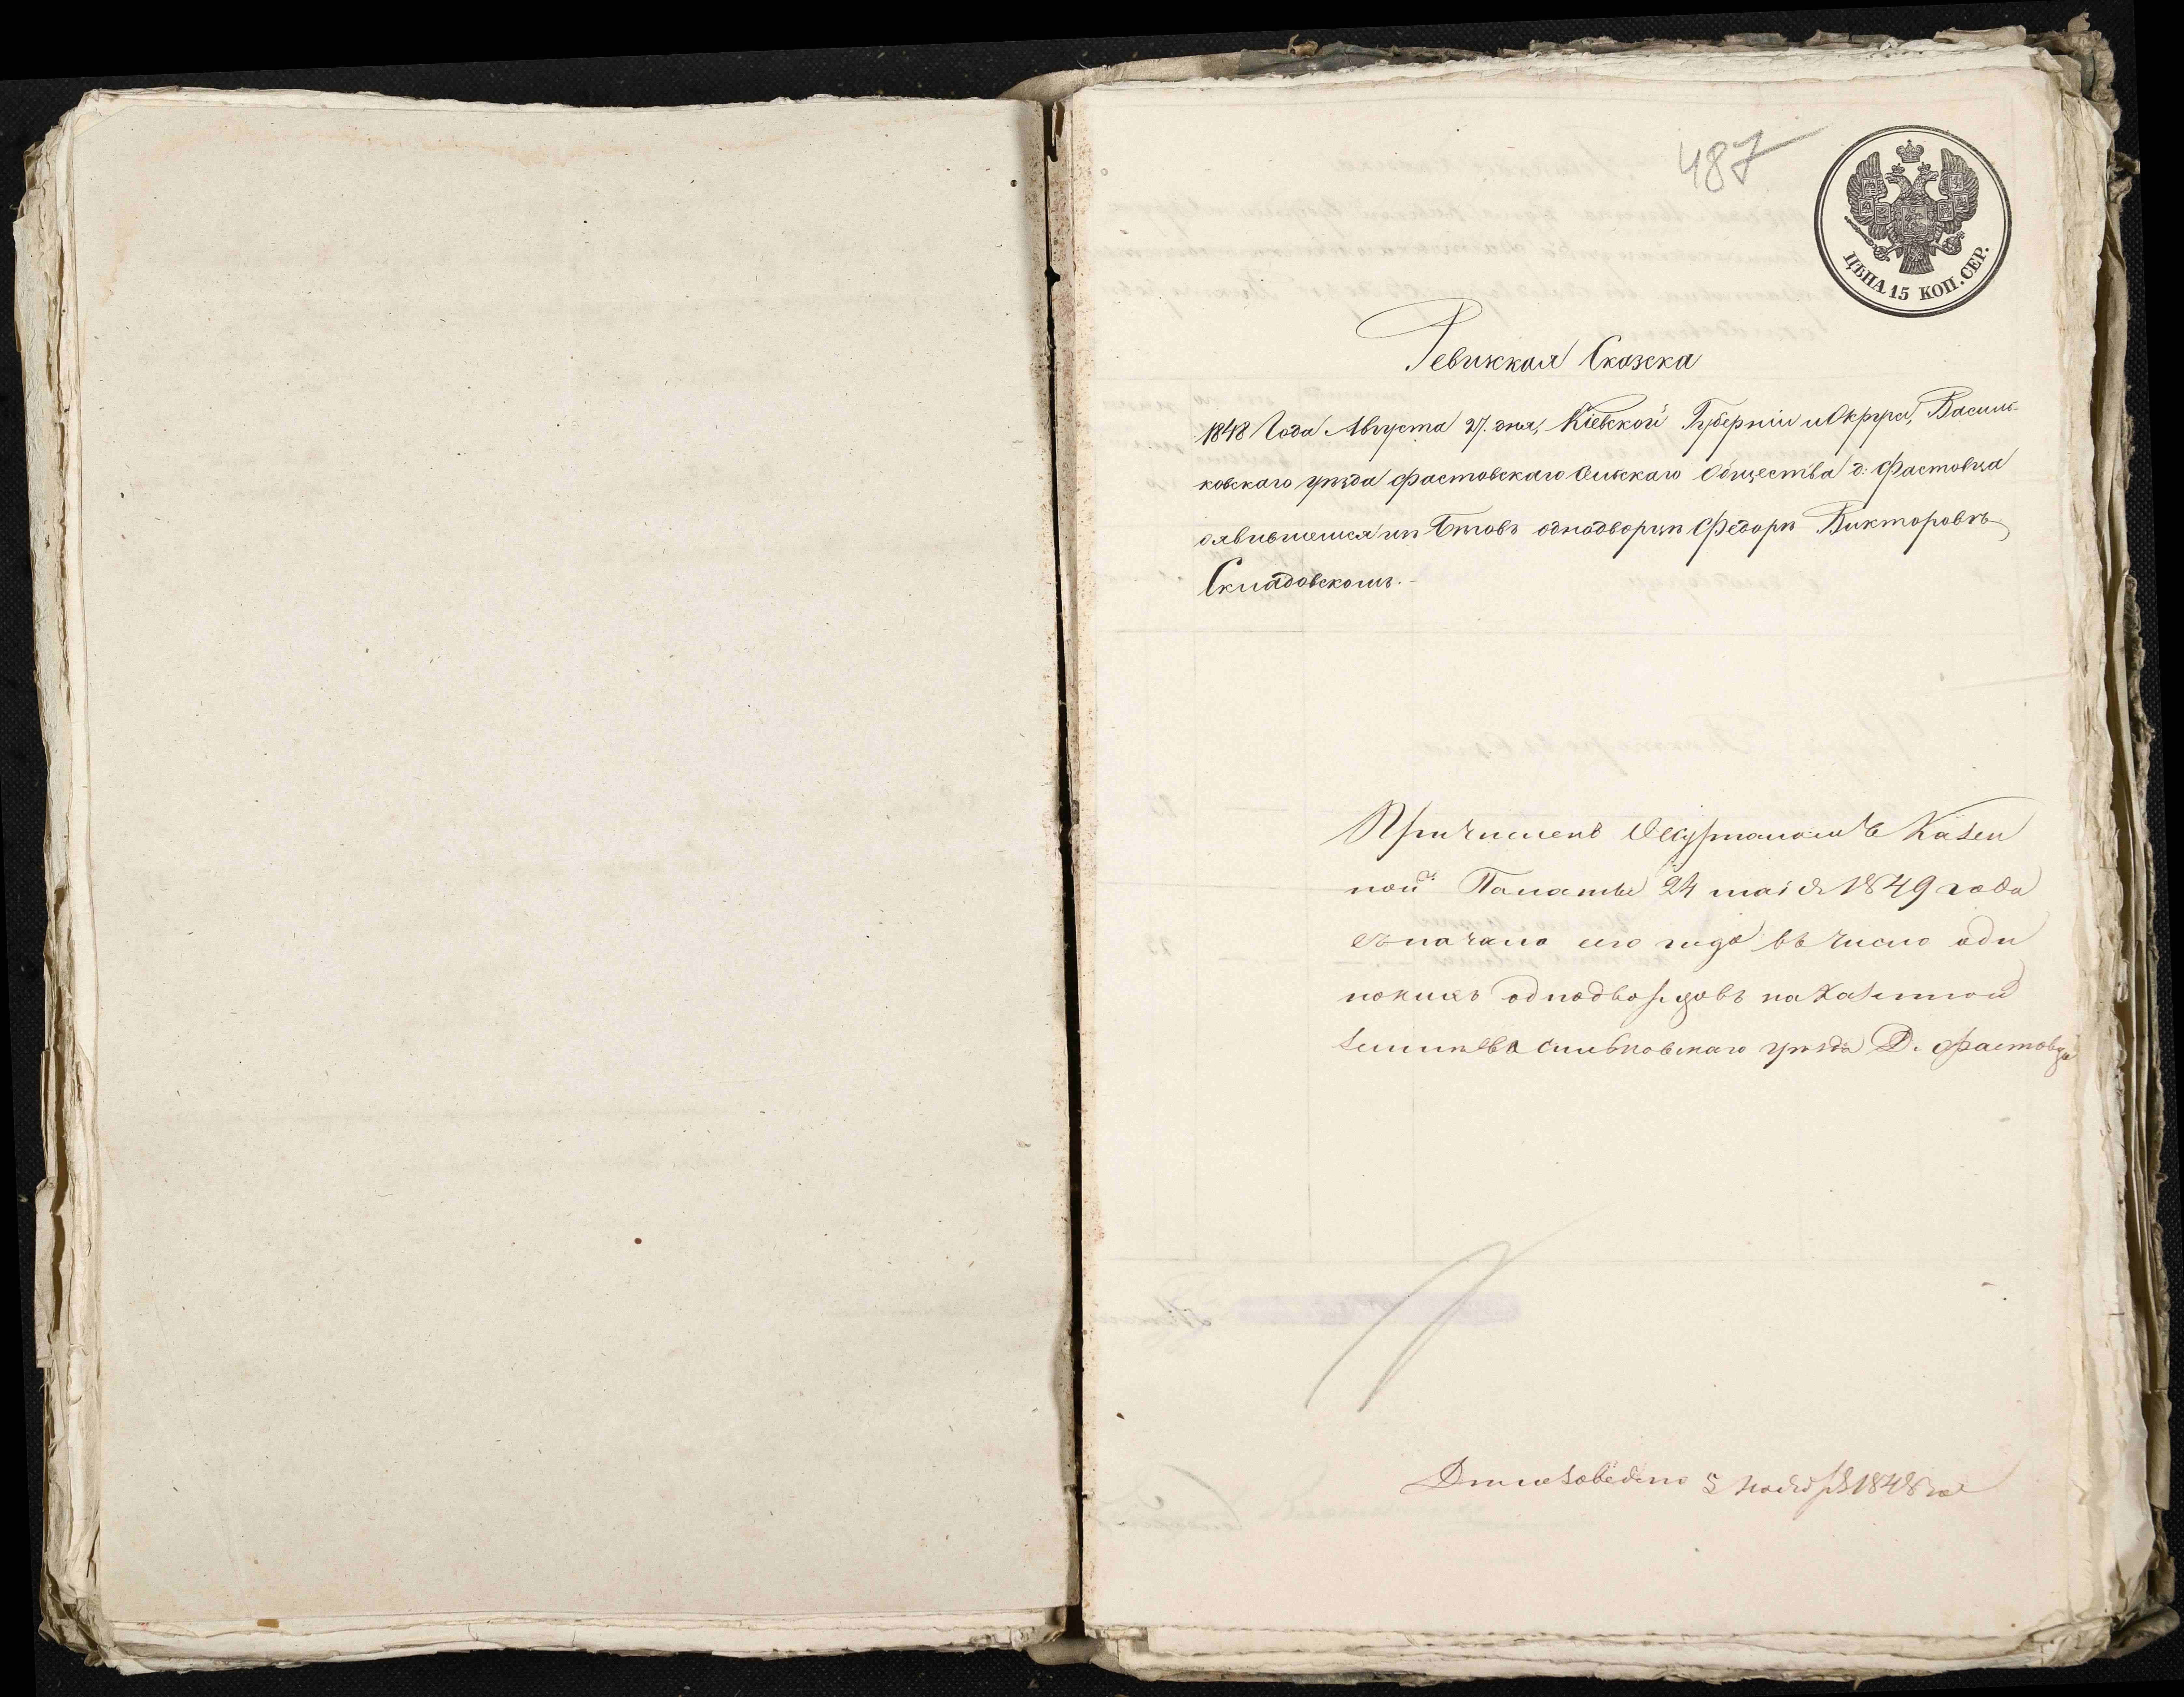 487
ЦѢНА 15 КОП. СЕР.
Ревизкая Сказка
1848 Года Августа 27. дня, Кіевской Губерніи и Округа, Василь-
ковскаго уѣзда Фастовскаго Сельскаго Общества д: Фастовца
о явившемся изъ бѣговъ однодворцѣ Федорѣ Викторовѣ
Складовскомъ.-
Причисленъ Журналомъ Казен
ной Палаты 24 маія 1849 года
съ начала сего года въ число оди
нокихъ однодворцовъ на казенной
земли Васильковскаго уѣзда Д. Фастовца
Дѣло заведено 5 Ноября 1848 го